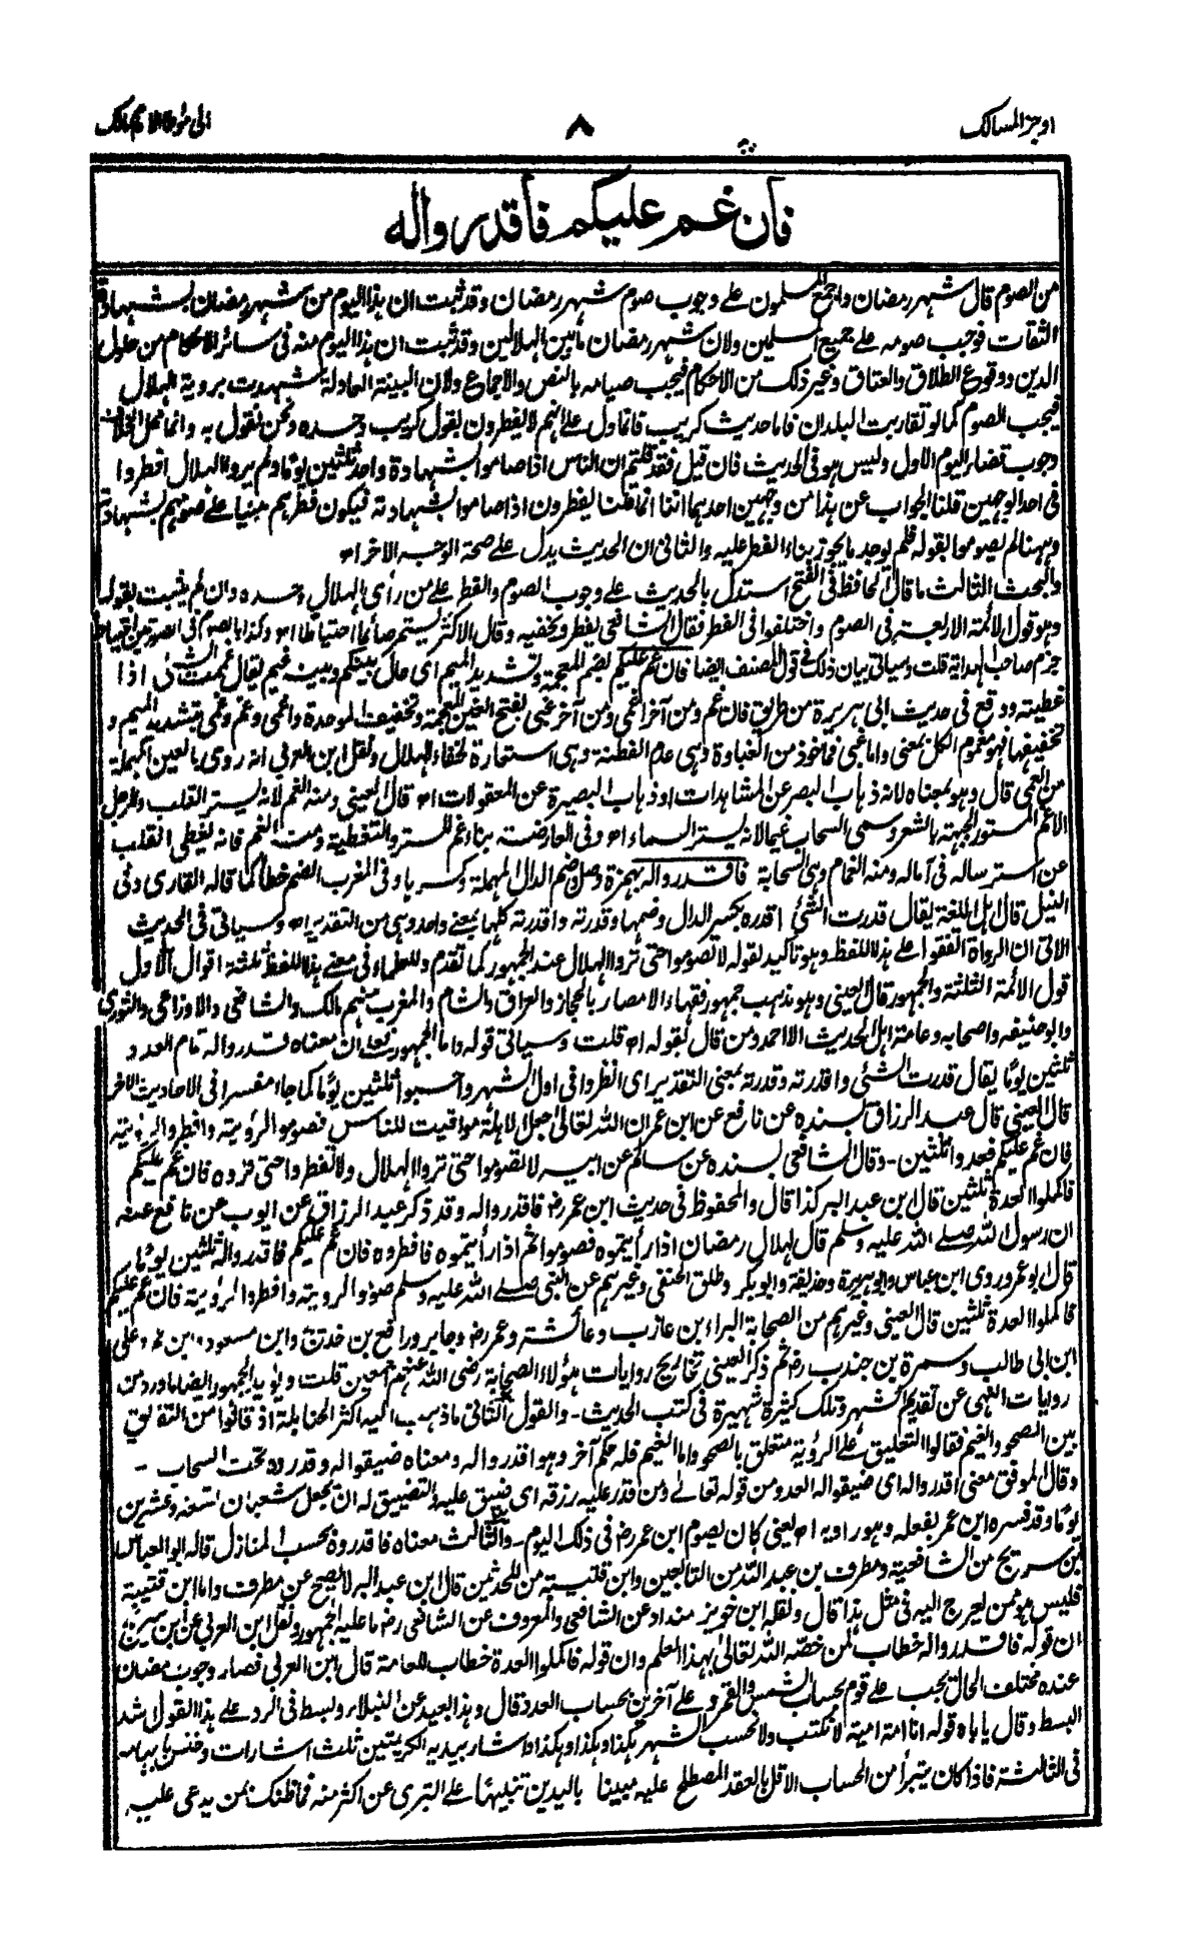 اوجز المسالك
٨
الى موطا الامام مالك
فان غم عليكم فاقدروا له
من الصوم قال شهر رمضان واجمع المسلمون على وجوب صوم شهر رمضان وقد ثبت ان هذا اليوم من شهر رمضان بشهادة
الثقات فوجب صومه على جميع المسلمين ولان شهر رمضان ما بين الهلالين وقد ثبت ان هذا اليوم منه في سائر الاحكام من حلول
الدين ووقوع الطلاق والعتاق وغير ذلك من الاحكام فيجب صيامه بالنص والاجماع ولان البينة العادلة شهدت بروية الهلال
فيجب الصوم كما لو تقاربت البلدان فاما حديث كريب فانما دل على انهم لا يفطرون بقول كريب وحده ونحن نقول به وانما محل الخلاف
وجوب قضاء اليوم الاول وليس هو في الحديث فان قيل فقد قلتم ان الناس اذا صاموا بشهادة واحد ثلثين يوما ولم يروا الهلال افطروا
في احد الوجهين قلنا الجواب عن هذا من وجهين احدهما اننا انما قلنا يفطرون اذا صاموا بشهادته فيكون فطرهم مبنيا على صومهم بشهادته
وههنا لم يصوموا بقوله فلم يوجد ما يجوز بناء الفطر عليه والثاني ان الحديث يدل على صحة الوجه الاخر اه
والبحث الثالث ما قال الحافظ في الفتح استدل بالحديث على وجوب الصوم والفطر على من رأى الهلال وحده وان لم يثبت بقوله
وهو قول الائمة الاربعة في الصوم واختلفوا في الفطر فقال الشافعي يفطر ويخفيه وقال الاكثر يستمر صائما احتياطا اه وكذا بالصوم في الصورتين
جزم صاحب الهداية قلت وسياتي بيان ذلك في قول المصنف ايضا فان غم عليكم بضم المعجمة وتشديد الميم اى حال بينكم وبينه غيم يقال غممت الشئ اذا
غطيته ووقع في حديث ابى هريرة من طريق فان غم ومن آخر اغمى ومن آخر غبى بفتح الغين المعجمة وتخفيف الموحدة واغمى وغم وغمى بتشديد الميم و
تخفيفها فهو مغموم الكل بمعنى واما غبى فماخوذ من الغباوة وهى عدم الفطنة وهى استعارة لخفاء الهلال ونقل ابن العربي انه روى بالعين المهملة
من العمى قال وهو بمعناه لانه ذهاب البصر عن المشاهدات او ذهاب البصيرة عن المعقولات اه قال العيني ومنه الغم لانه يستر القلب والرجل
الاغم المستور الجبهة بالشعر وسمى السحاب غيما لانه يستر السماء اه وفى العارضة بناء غم للستر والتغطية ومنه الغم فانه يغطى القلب
عن استرساله في آماله ومنه الغمام وهى السحابة فاقدروا له بهمزة وصل وضم الدال المهملة وكسرها وفى المغرب الضم خطأ كما قاله القارى وفى
النيل قال اهل اللغة يقال قدرت الشئ اقدره بكسر الدال وضمها وقدرته واقدرته كلها بمعنى واحد وهى من التقدير اه وسياتى في الحديث
الاتى ان الرواة اتفقوا على هذا اللفظ وهو تأكيد لقوله لا تصوموا حتى تروا الهلال عند الجمهور كما تقدم وللعلماء في معنى هذا اللفظ ثلثة اقوال الاول
قول الائمة الثلثة والجمهور قال العيني وهو مذهب جمهور فقهاء الامصار بالحجاز والعراق والشام والمغرب منهم مالك والشافعي والاوزاعي والثوري
وابو حنيفة واصحابه وعامة اهل الحديث الا احمد ومن قال بقوله اه قلت وسياتى قوله واما الجمهور فعندهم ان معناه قدروا له تمام العدد
ثلثين يوما يقال قدرت الشئ واقدرته وقدرته بمعنى التقدير اى انظروا في اول الشهر واحسبوا ثلثين يوما كما جاء مفسرا في الاحاديث الاخر
قال العيني قال عبد الرزاق بسنده عن نافع عن ابن عمر ان الله تعالى جعل الاهلة مواقيت للناس فصوموا لرؤيته وافطروا لرؤيته
فان غم عليكم فعدوا ثلثين - وقال الشافعي بسنده عن سالم عن ابيه لا تصوموا حتى تروا الهلال ولا تفطروا حتى تروه فان غم عليكم
فاكملوا العدة ثلثين قال ابن عبد البر كذا قال والمحفوظ في حديث ابن عمر رض فاقدروا له وقد ذكر عبد الرزاق عن ايوب عن نافع عنه
ان رسول الله صلى الله عليه وسلم قال لهلال رمضان اذا رأيتموه فصوموا ثم اذا رأيتموه فافطروه فان غم عليكم فاقدروا له ثلثين يوما
قال ابو عمر وروى ابن عباس وابو هريرة وحذيفة وابو بكر وطلق الحنفى وغيرهم عن النبى صلى الله عليه وسلم صوموا لرؤيته وافطروا لرؤيته فان غم عليكم
فاكملوا العدة ثلثين قال العيني وغيرهم من الصحابة البراء بن عازب وعائشة وعمر رض وجابر ورافع بن خديج وابن مسعود وابن عمر وعلى
ابن ابى طالب وسمرة بن جندب رض ثم ذكر العيني تخاريج روايات هؤلاء الصحابة رضى الله عنهم اجمعين قلت ويؤيد الجمهور ايضا ما ورد من
روايات النهى عن تقديم الشهر وتلك كثيرة شهيرة في كتب الحديث - والقول الثاني ما ذهب اليه اكثر الحنابلة اذ قالوا من التفريق
بين الصحو والغيم فقالوا التعليق على الرؤية متعلق بالصحو واما الغيم فله حكم آخر وهو اقدروا له ومعناه ضيقوا له وقدروه تحت السحاب -
وقال الموفق معنى اقدروا له اى ضيقوا له العدد من قوله تعالى ومن قدر عليه رزقه اى ضيق عليه والتضييق له ان يجعل شعبان تسعة وعشرين
يوما وقد فسره ابن عمر بفعله وهو راويه اه يعنى كان يصوم ابن عمر رض في ذلك اليوم - والثالث معناه فاقدروه بحسب المنازل قاله ابو العباس
ابن سريج من الشافعية ومطرف بن عبد الله من التابعين وابن قتيبة من المحدثين قال ابن عبد البر لا يصح عن مطرف واما ابن قتيبة
فليس هو ممن يعرج اليه في مثل هذا قال ونقله ابن خويز منداد عن الشافعي والمعروف عن الشافعي رض ما عليه الجمهور ونقل ابن العربي عن ابن سريج
ان قوله فاقدروا له خطاب لمن خصه الله تعالى بهذا العلم وان قوله فاكملوا العدة خطاب للعامة قال ابن العربي فصار وجوب رمضان
عنده مختلف الحال يجب على قوم بحساب الشمس والقمر وعلى آخرين بحساب العدد قال وهذا بعيد عن النبلاء وبسط في الرد على هذا القول اشد
البسط وقال ياباه قوله انا امة امية لا نكتب ولا نحسب الشهر هكذا وهكذا وهكذا واشار بيديه الكريمتين ثلث اشارات وخنس بابهامه
في الثالثة فاذا كان يتبرأ من الحساب الاقل بالعقد المصطلح عليه مبينا باليدين تنبيها على التبرى عن اكثر منه فما ظنك بمن يدعى عليه